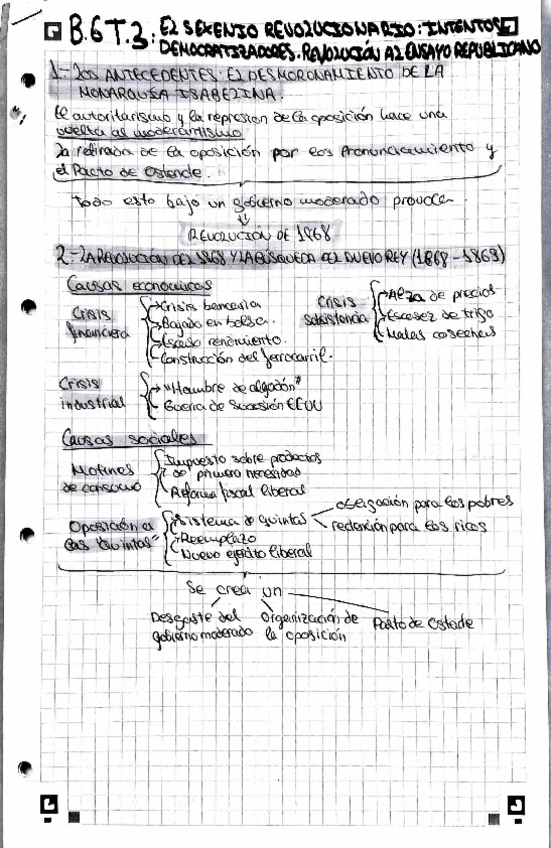 B.6 T.3. EL SEXENIO REVOLUCIONARIO: INTENTOS
DEMOCRATIZADORES. REVOLUCIÓN AL ENSAYO REPUBLICANO
1.- LOS ANTECEDENTES: EL DESMORONAMIENTO DE LA
MONARQUÍA ISABELINA.
El autoritarismo y la represión de la oposición hace una
vuelta al moderantismo
La retirada de la oposición por los Pronunciamiento y
el Pacto de Ostende.
Todo esto bajo un gobierno moderado provoca
REVOLUCIÓN DE 1868
2.- LA REVOLUCIÓN DEL 1868 Y LA BÚSQUEDA DEL NUEVO REY (1868-1869)
Causas económicas
Crisis financiera
Crisis bancaria
Bajada en bolsa.
Escaso rendimiento.
Construcción del ferrocarril.
Crisis subsistencia
Alza de precios
Escasez de trigo
Malas cosechas
Crisis industrial
"Hambre de algodón"
Guerra de Sucesión EEUU
Causas sociales
Motines de consumo
Impuesto sobre productos
de primera necesidad
Reforma fiscal liberal
Oposición a las "Quintas"
Sistema de quintas
obligación para los pobres
redención para los ricos
Reemplazo
Nuevo ejército liberal
Se crea un
Desgaste del
gobierno moderado
Organización de
la oposición
Pacto de Ostende